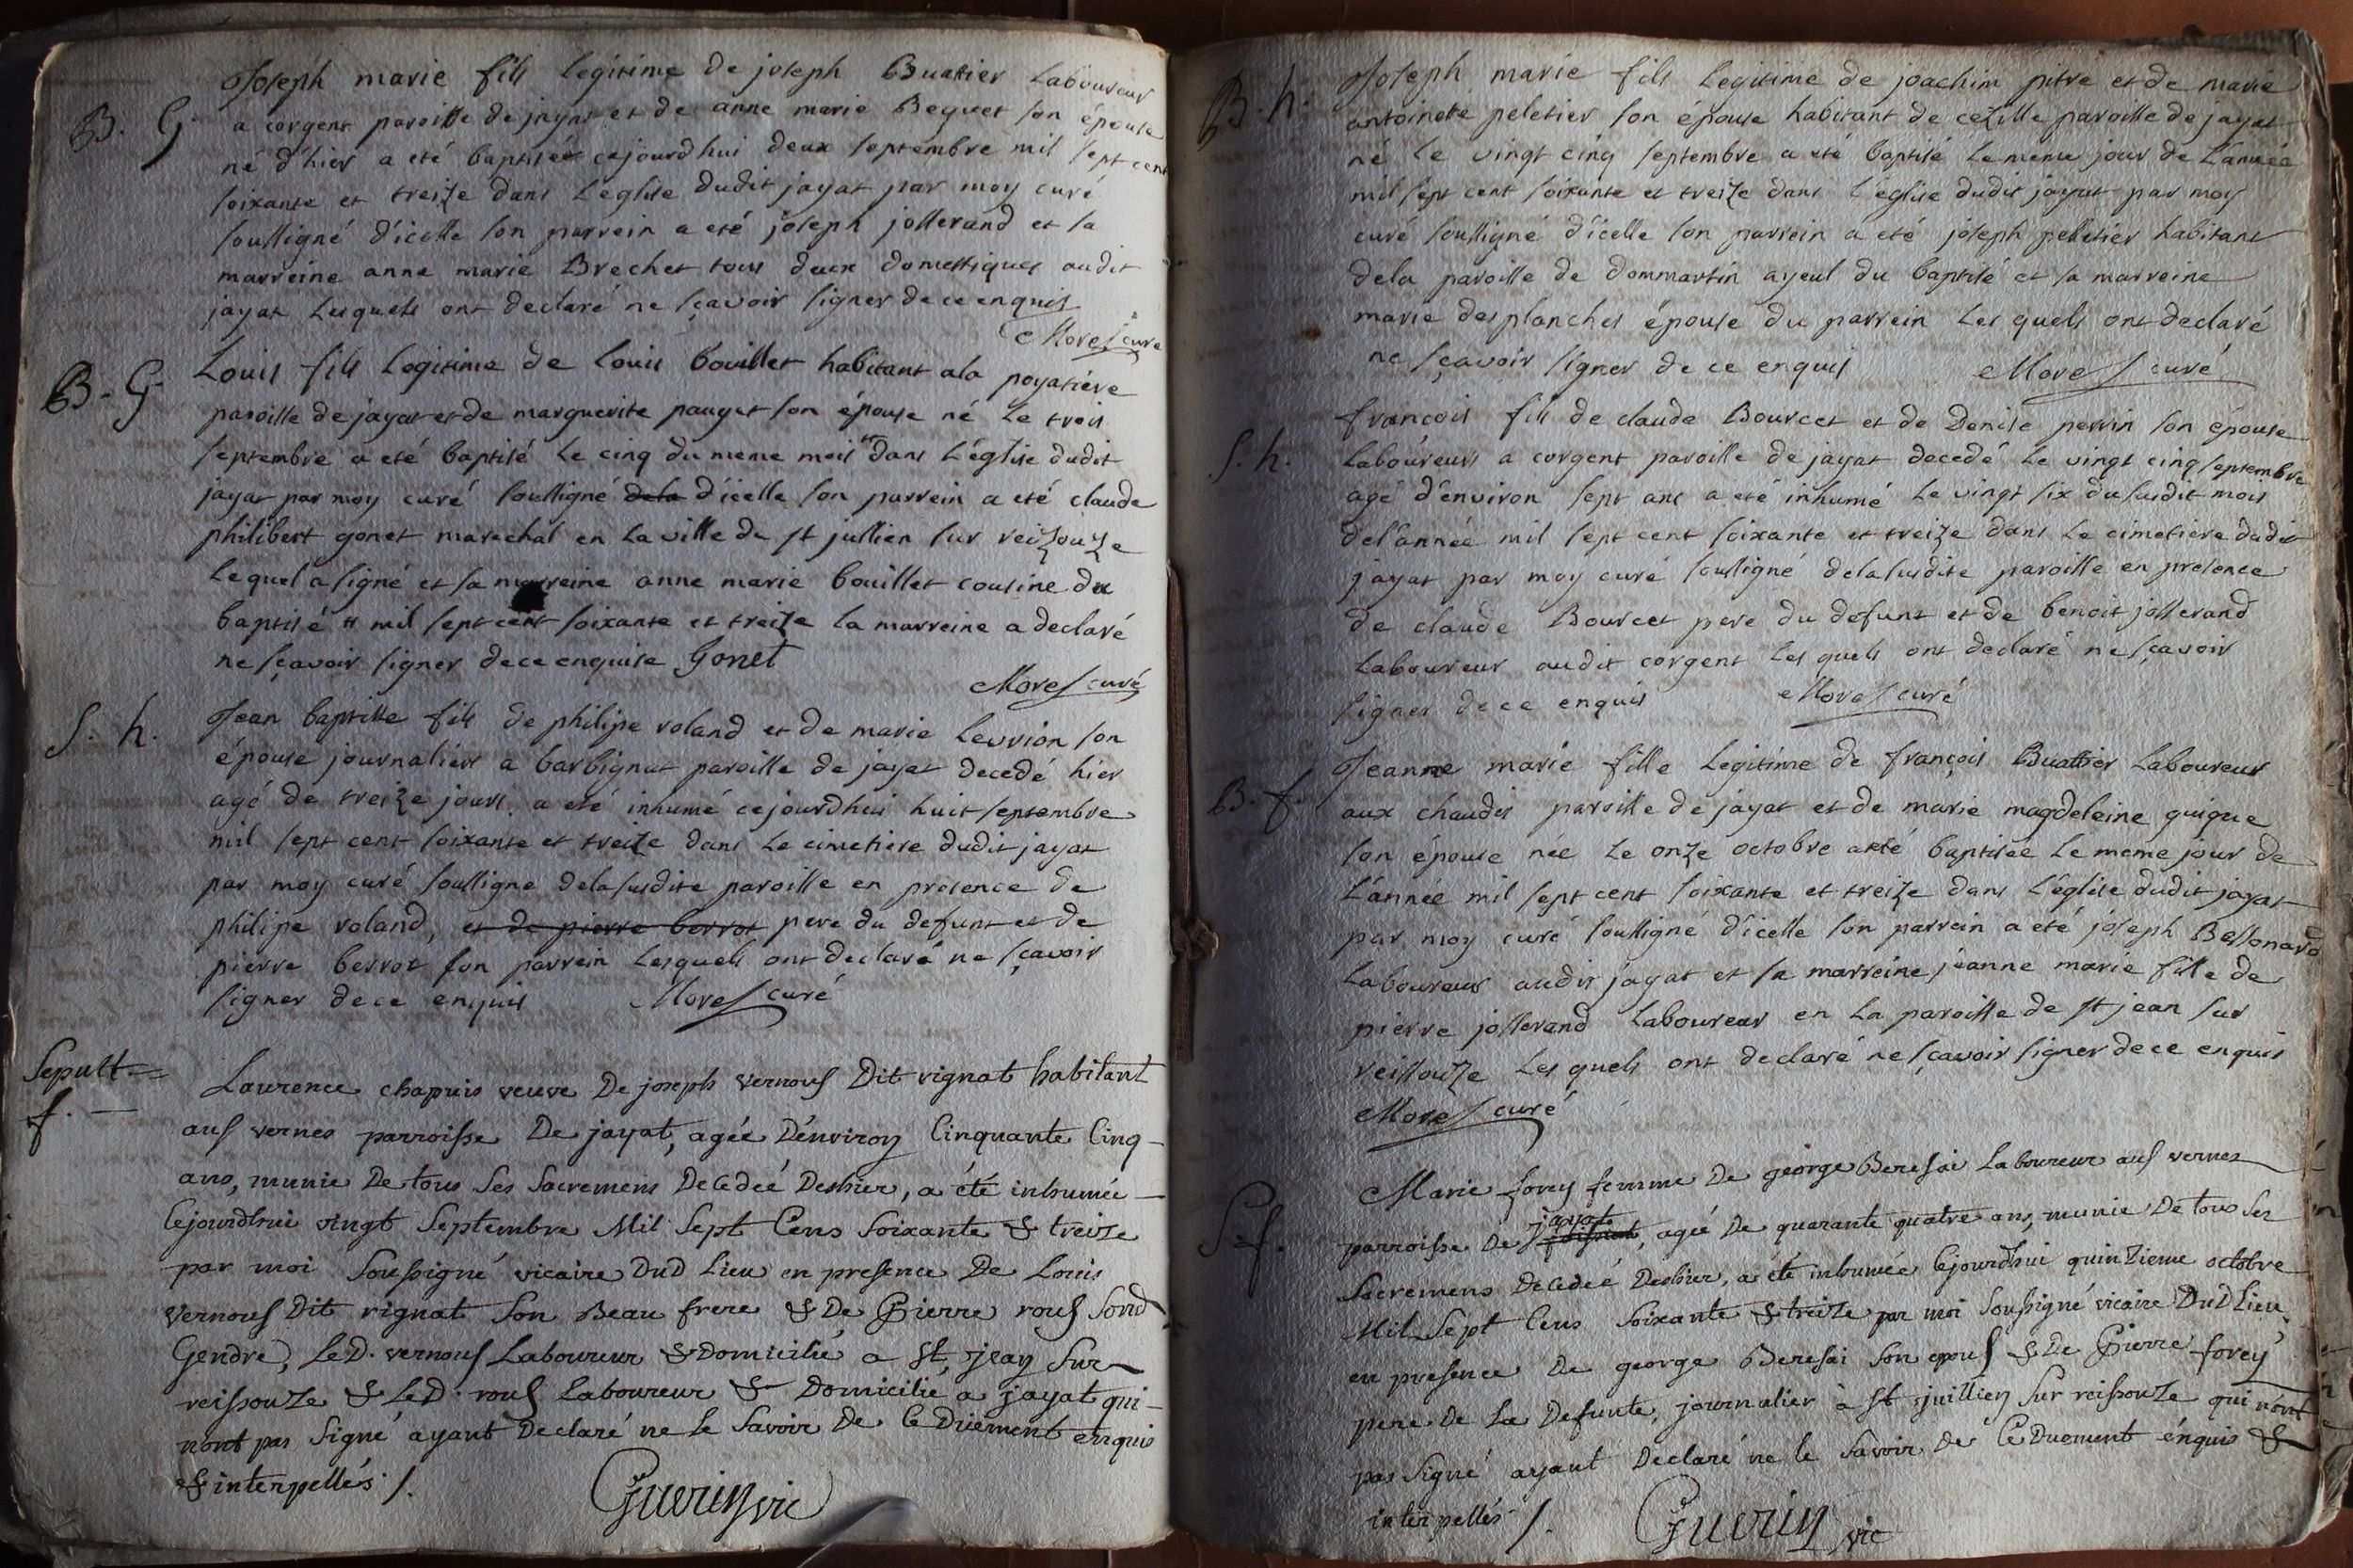 Joseph marie fils legitime de joseph Buatier Laboureur
B. G. a corgent paroisse de jayat et de anne marie Bequet son épouse
né d'hier a eté baptisé cejourdhui deux septembre mil sept cent
soixante et treize dans L'eglise dudit jayat par moy curé
soussigné d'icelle son parrein a eté joseph josserand et sa
marreine anne marie Brechet tous deux domestiques audit
jayat Lesquels ont declaré ne sçavoir signer de ce enquis
Morel curé
Louis fils legitime de Louis bouillet habitant a la poyatiere
B. G. paroisse de jayat et de marguerite pauget son épouse né Le trois
septembre a eté baptisé Le cinq du meme mois dans L'église dudit
jayat par moy curé soussigné dela d'icelle son parrein a eté claude
philibert gonet marechal en La ville de st jullien sur reizouze
Lequel a signé et sa marreine anne marie bouillet cousine du
baptisé # mil sept cent soixante et treize La marreine a declaré
ne sçavoir signer de ce enquise Gonet
Morel curé
S. h. Jean baptiste fils de philipe roland et de marie Levrion son
épouse journalier a barbignat paroisse de jayat decedé hier
agé de treize jours a eté inhumé cejourdhui huit septembre
mil sept cent soixante et treize dans Le cimetiere dudit jayat
par moy curé soussigné dela susdite paroisse en presence de
philipe roland, et de pierre berrot pere du defunt et de
pierre berrot son parrein Lesquels ont declaré ne sçavoir
signer de ce enquis Morel curé
Sepult=
f. —
Laurence chapuis veuve De joseph vernouſ Dit rignat habitant
auſ vernes parroisse De jayat, agée D'environ Cinquante Cinq -
ans, munie De tous ses sacremens Decedeé Deshier, a été inhumée —
Cejourdhui vingt Septembre Mil Sept Cens Soixante & treize
par moi Soussigné vicaire DuD Lieu en presence De Louis
vernouſ Dit rignat Son Beau frere & De Pierre rouſ Sond
Gendre, LeD. vernouſ Laboureur & Domicilié a St jean Sur
reissouze & LeD. rouſ Laboureur & Domicilié a jayat qui -
nont pas Signé ayant Declaré ne le Savoir De Ce Duement enquis
& interpellés /.
Guerin vic
B. h. Joseph marie fils Legitime de joachim pitre et de marie
antoinete peletier son épouse habitant de cezille paroisse de jayat
né Le vingt cinq septembre a eté baptisé Le meme jour de L'année
mil sept cent soixante et treize dans L'église dudit jayat par moy
curé soussigné d'icelle son parrein a eté joseph peletier habitant
dela paroisse de dommartin ayeul du baptisé et sa marreine
marie desplanches épouse du parrein Les quels ont declaré
ne sçavoir signer de ce enquis Morel curé
françois fils de claude Bourcet et de Denise perrin son épouse
S. h. Laboureurs a corgent paroisse de jayat decedé Le vingt cinq septembre
agé d'environ sept ans a eté inhumé Le vingt six du susdit mois
de l'année mil sept cent soixante et treize dans Le cimetiere dudit
jayat par moy curé soussigné dela susdite paroisse en presence
de claude Bourcet pere du defunt et de benoit josserand
Laboureur audit corgent Les quels ont declaré ne sçavoir
signer de ce enquis Morel curé
Jeanne marie fille Legitime de françois Buattier Laboureur
B. f. aux chaudes paroisse de jayat et de marie magdeleine guigue
son épouse née Le onze octobre a eté baptisée Le meme jour de
L'année mil sept cent soixante et treize dans L'église dudit jayat
par moy curé soussigné d'icelle son parrein a eté joseph Bessonard
Laboureur audit jayat et sa marreine jeanne marie fille de
pierre josserand Laboureur en La paroisse de st jean sur
reissouze Les quels ont declaré ne sçavoir signer de ce enquis
Morel curé
Marie forey femme De george Beresai Laboureur auſ vernes
jayat
S. f. parroisse De, agée De quarante quatre ans, munie De tous ses
Sacremens Decedeé Deshier, a été inhumée Cejourdhui quinzieme octobre
Mil Sept Cens Soixante & treize par moi Soussigné vicaire DuD Lieu,
en presence De george Beresai Son epouſ & De Pierre forey
pere De La Defunte, journalier à St juillien Sur reissouze qui nont
pas Signé ayant Declaré ne le Savoir De Ce Duement énquis &
interpellés /. Guerin vic